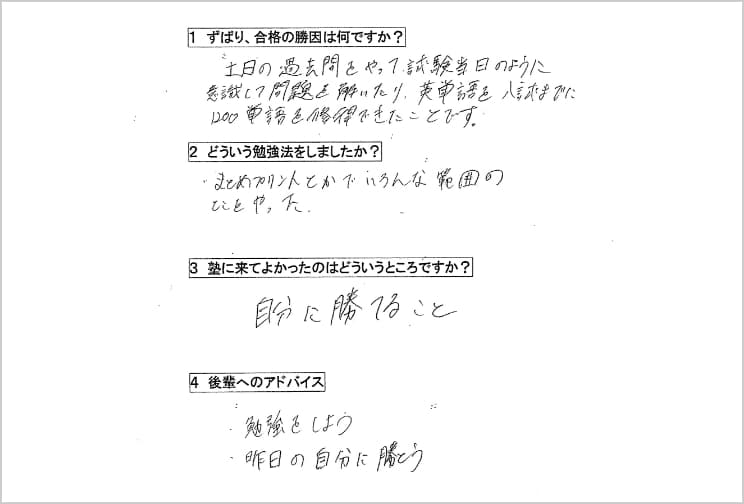 1 ずばり、合格の勝因は何ですか？
土日の過去問をやって試験当日のように
意識して問題を解いたり、英単語を入試までに
1200単語を修得できたことです。
2 どういう勉強法をしましたか？
・まとめプリントとかでいろんな範囲の
とこをやった.
3 塾に来てよかったのはどういうところですか？
自分に勝てること
4 後輩へのアドバイス
・勉強をしよう
・昨日の自分に勝とう